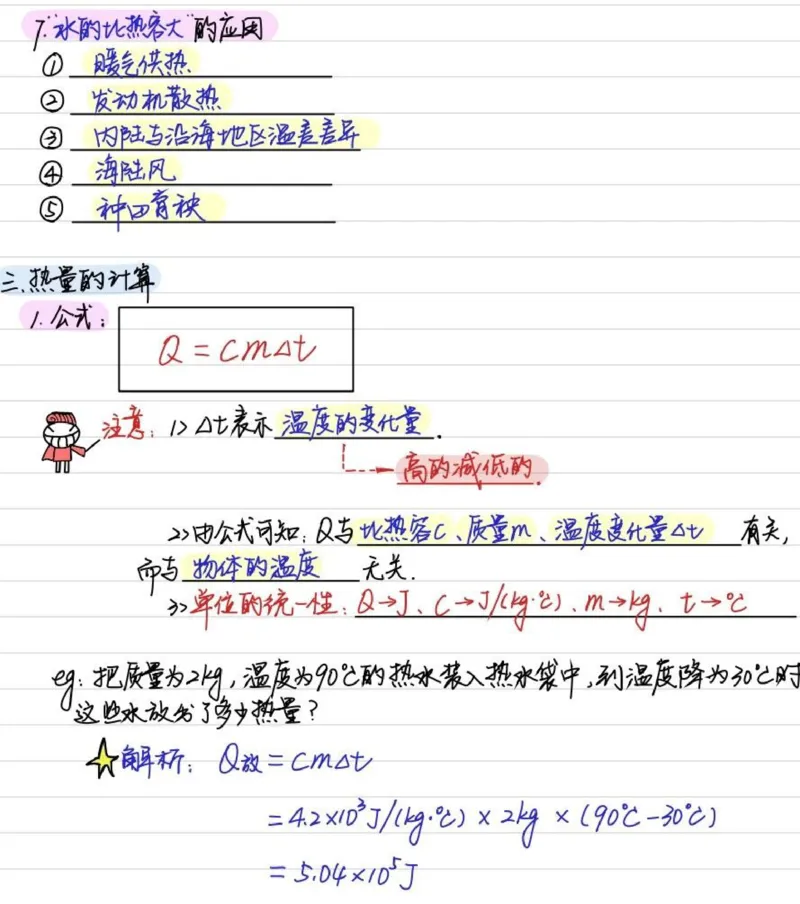 7."水的比热容大"的应用
① 暖气供热
② 发动机散热
③ 内陆与沿海地区温差差异
④ 海陆风
⑤ 种田育秧
三.热量的计算
1.公式:
Q = cm△t
注意: 1> △t表示 温度的变化量.
高的减低的.
2>由公式可知: Q与比热容c、质量m、温度变化量△t 有关,
而与 物体的温度 无关.
3>单位的统一性: Q→J、C→J/(kg·℃)、m→kg、t→℃
eg: 把质量为2kg,温度为90℃的热水装入热水袋中,到温度降为30℃时
这些水放出了多少热量?
解析: Q放 = cm△t
= 4.2×10³J/(kg·℃) × 2kg × (90℃-30℃)
= 5.04×10⁵J